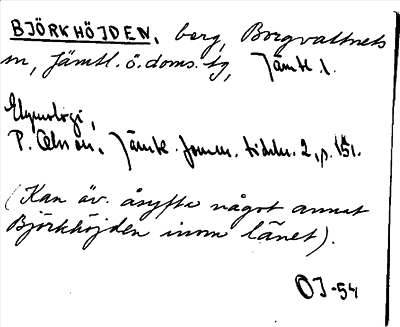 BJÖRKHÖJDEN, berg, Borgvattnets
sn, Jämtl. ö. doms. tg, Jämtl. l.
Etymologi,
P. Olsson, Jämtl. fornm. tidskr. 2, p. 151.
(Kan äv. åsyfta något annat
Björkhöjden inom länet).
OJ-54